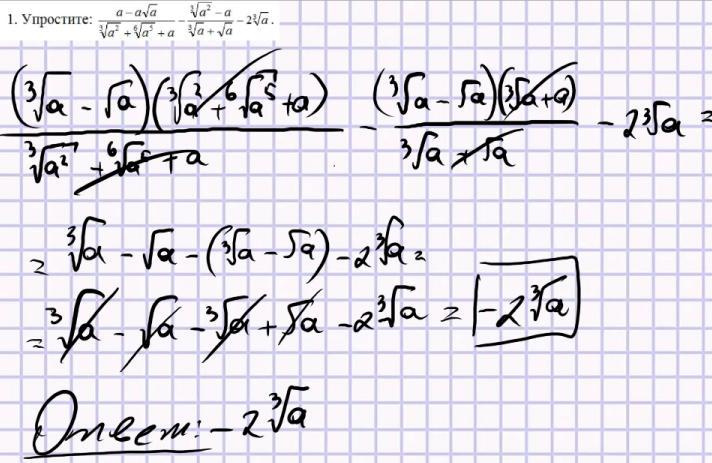 1. Упростите: \frac{a-a\sqrt{a}}{\sqrt[3]{a^2}+\sqrt[6]{a^5}+a} - \frac{\sqrt[3]{a^2}-a}{\sqrt[3]{a}+\sqrt{a}} - 2\sqrt[3]{a}.
\frac{(\sqrt[3]{a}-\sqrt{a})(\sqrt[3]{a^2}+\sqrt[6]{a^5}+a)}{\sqrt[3]{a^2}+\sqrt[6]{a^5}+a} - \frac{(\sqrt[3]{a}-\sqrt{a})(\sqrt[3]{a}+a)}{\sqrt[3]{a}+\sqrt{a}} - 2\sqrt[3]{a} =
= \sqrt[3]{a} - \sqrt{a} - (\sqrt[3]{a} - \sqrt{a}) - 2\sqrt[3]{a} =
= \sqrt[3]{a} - \sqrt{a} - \sqrt[3]{a} + \sqrt{a} - 2\sqrt[3]{a} = -2\sqrt[3]{a}
Ответ: -2\sqrt[3]{a}